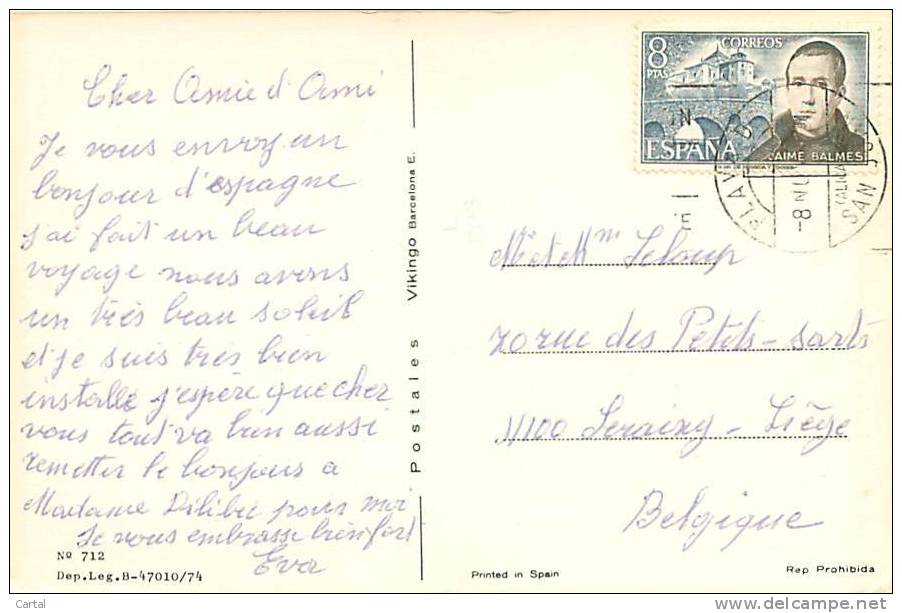 Cher Amie d'Ami
Je vous envoy un
bonjour d'espagne
j'ai fait un beau
voyage nous avons
un très beau soleil
et je suis très bien
installé j'espère que cher
vous tout va bien aussi
remetter le bonjours à
Madame pour moi
Je vous embrasse bien fort
Eva
Nº 712
Dep.Leg.B-47010/74
Postales Vikingo Barcelona E.
8 PTAS
CORREOS
ESPAÑA
JAIME BALMES
-8 NO
SAN JU
Mr et Mme Leloup
70 rue des Petits-Sarts
4100 Seraing-Liège
Belgique
Printed in Spain
Rep Prohibida
Cartal
delcampe.net